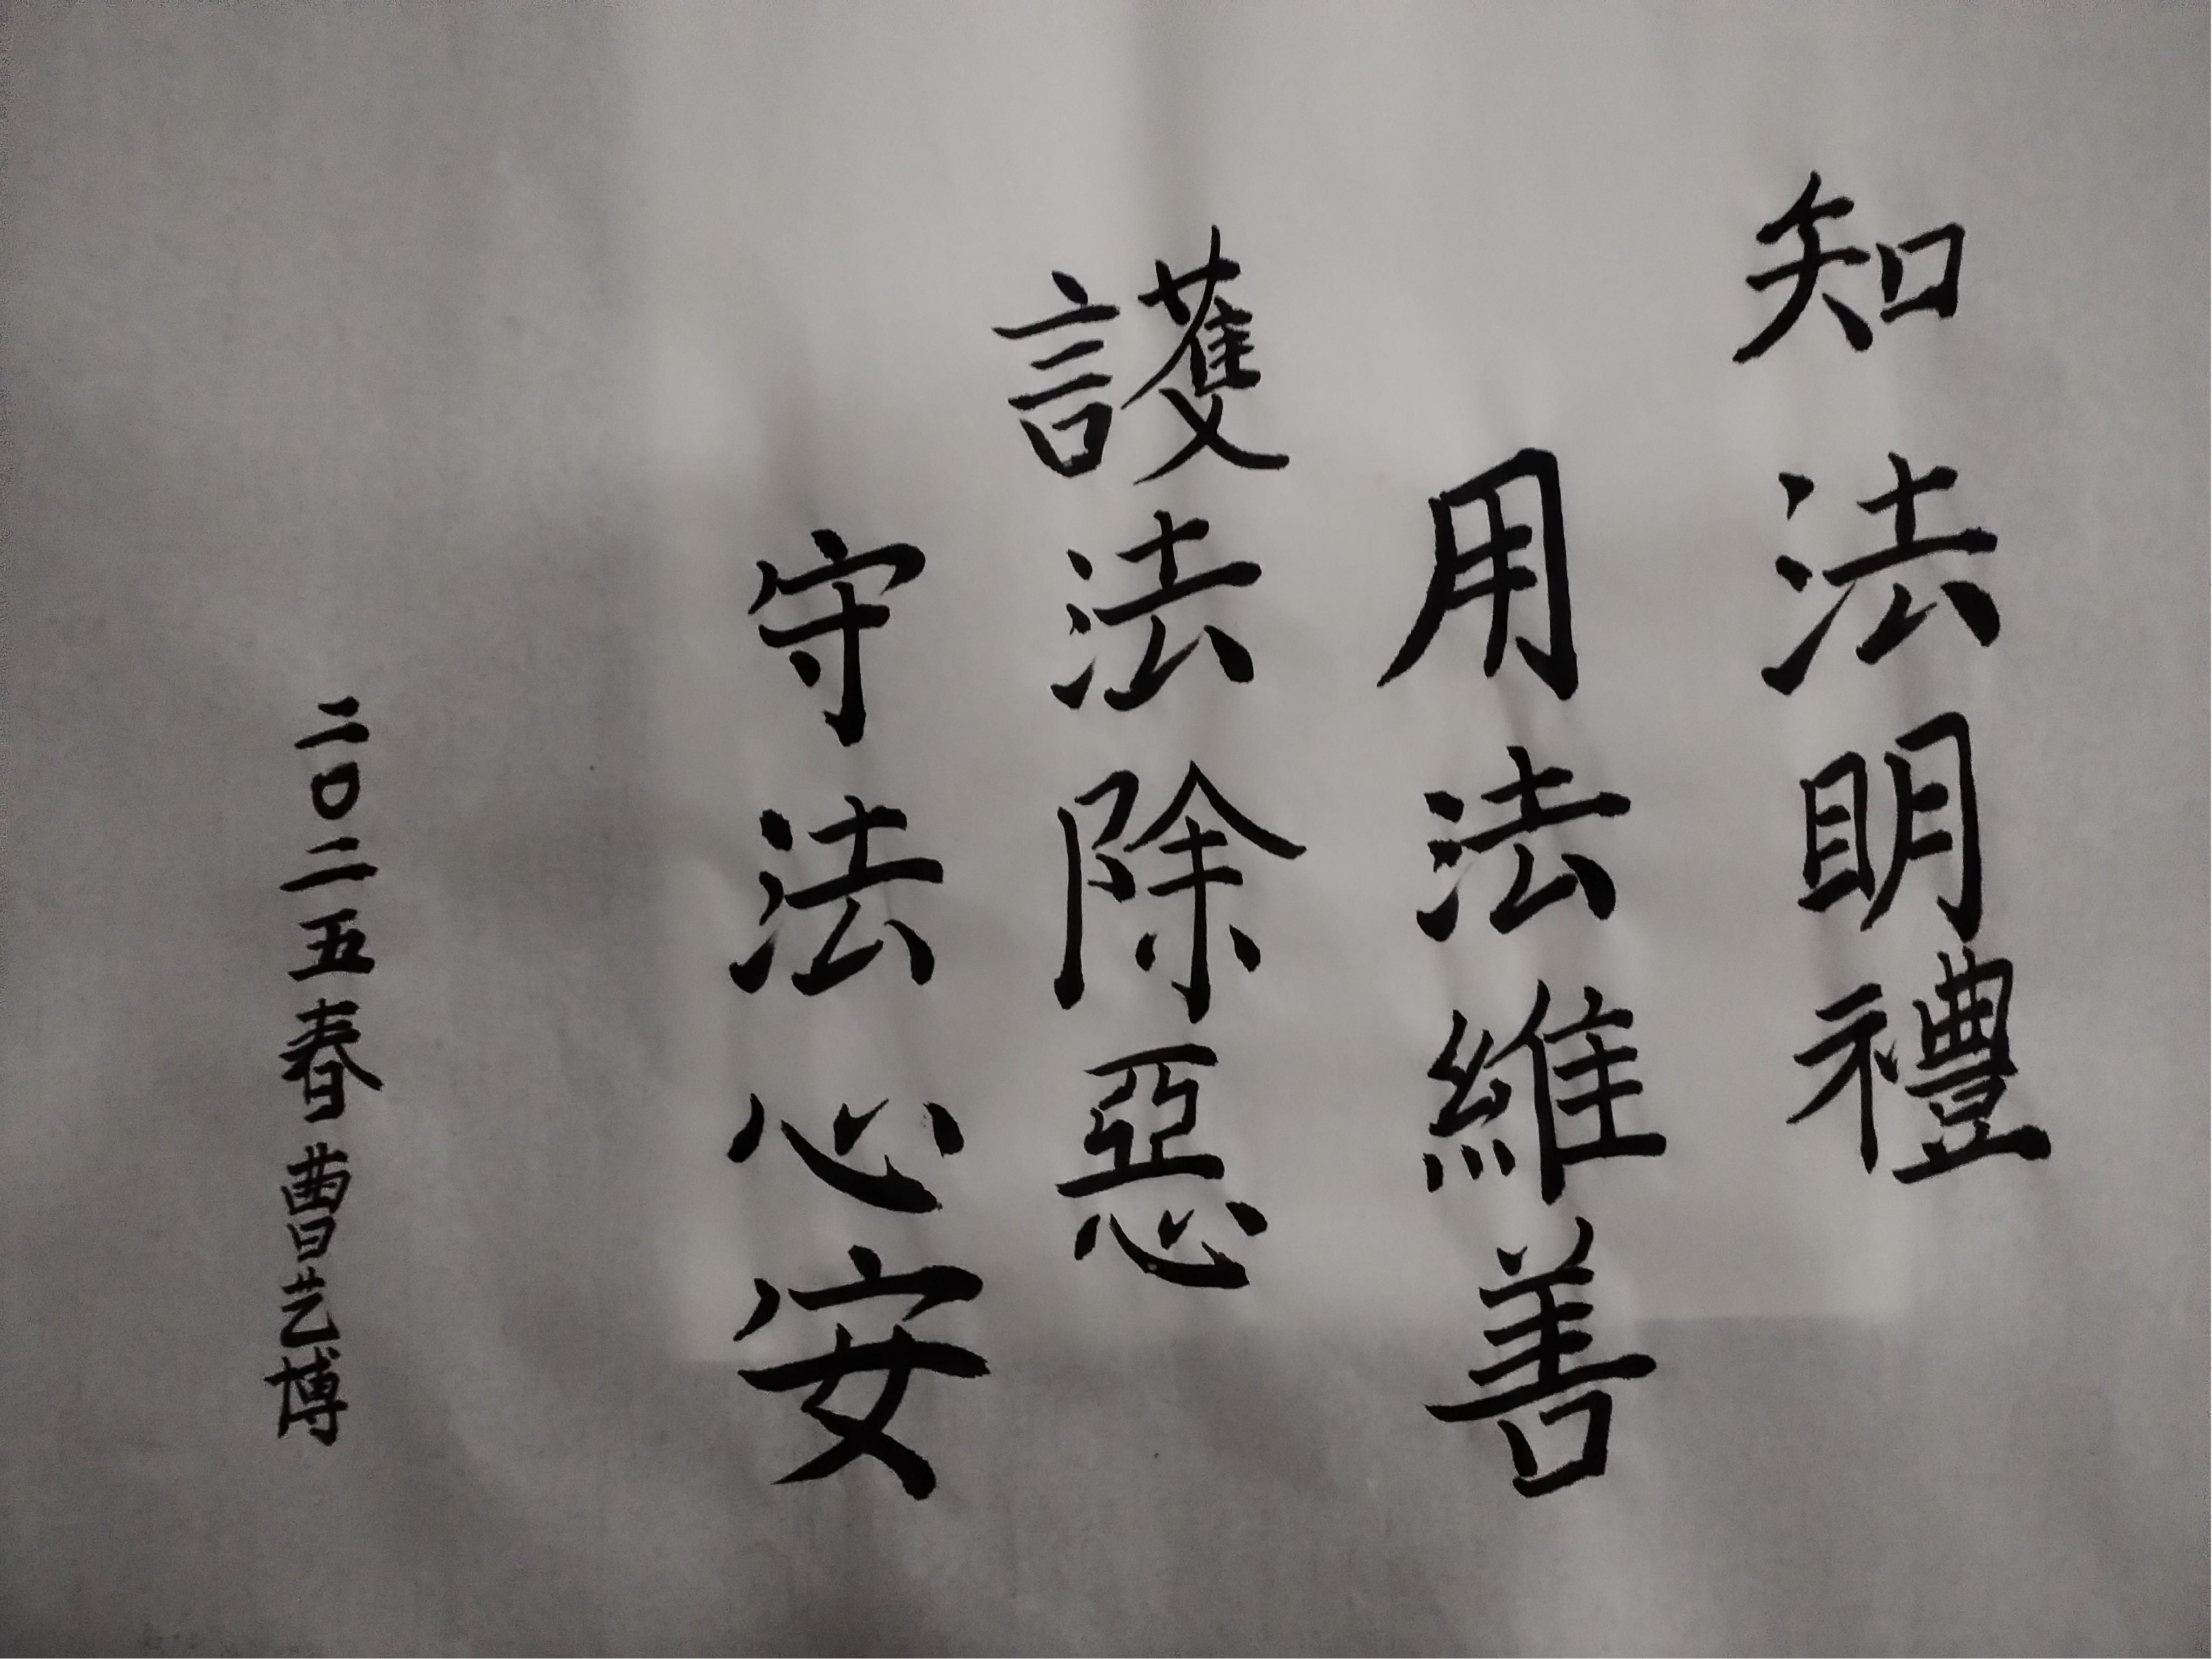 知法明禮
用法維善
護法除惡
守法心安
二〇二五春曹艺博